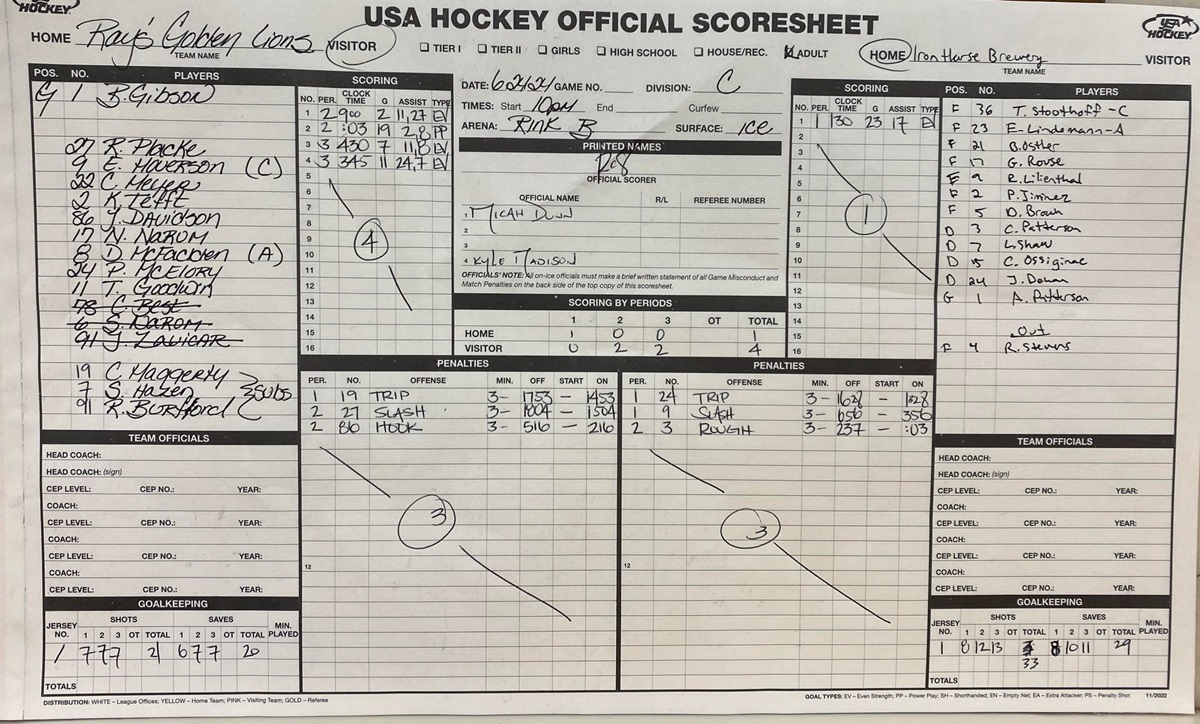 HOCKEY.
USA HOCKEY OFFICIAL SCORESHEET
USA HOCKEY
HOME Ray's Golden Lions VISITOR
TEAM NAME
TIER I TIER II GIRLS HIGH SCHOOL HOUSE/REC. ADULT
HOME Iron Horse Brewery VISITOR
TEAM NAME
POS. NO. PLAYERS
G 1 B. Gibson
27 R. Placke
9 E. Haverson (C)
22 C. Meyer
2 K. Tefft
86 J. Davidson
17 N. Narom
8 D. McFadden (A)
24 P. McElory
11 T. Goodwin
78 C. Best
6 S. Narom
91 J. Zavicar
19 C. Maggerty
7 S. Hazen SUBS
91 R. Burfford
SCORING
NO. PER. CLOCK TIME G ASSIST TYPE
1 2 900 2 11,27 EV
2 2 :03 19 2,8 PP
3 3 430 7 11,8 EV
4 3 345 11 24,7 EV
5
6
7
8
9
10
11
12
13
14
15
16
4
DATE: 6/2/24 GAME NO. DIVISION: C
TIMES: Start 10pm End Curfew
ARENA: Rink B SURFACE: ICE
PRINTED NAMES
OFFICIAL SCORER
OFFICIAL NAME R/L REFEREE NUMBER
1 Micah Dunn
2
3
4 Kyle Madison
OFFICIALS' NOTE: All on-ice officials must make a brief written statement of all Game Misconduct and
Match Penalties on the back side of the top copy of this scoresheet.
SCORING BY PERIODS
1 2 3 OT TOTAL
HOME 1 0 0 1
VISITOR 0 2 2 4
SCORING
NO. PER. CLOCK TIME G ASSIST TYPE
1 1 130 23 17 EV
2
3
4
5
6
7
8
9
10
11
12
13
14
15
16
1
POS. NO. PLAYERS
F 36 T. Stoothoff -C
F 23 E-Lindemann-A
F 21 B. Osther
F 17 G. Rouse
F 9 R. Lilienthal
F 2 P. Jiminez
F 5 D. Brown
D 3 C. Patterson
D 7 L. Shaw
D 15 C. Ossiginac
D 24 J. Dehan
G 1 A. Patterson
Out
F 4 R. Stevens
PENALTIES
PER. NO. OFFENSE MIN. OFF START ON
1 19 TRIP 3- 1753 – 1453
2 27 SLASH 3- 1804 – 1504
2 86 HOOK 3- 516 – 216
3
12
PENALTIES
PER. NO. OFFENSE MIN. OFF START ON
1 24 TRIP 3- 1628 – 1328
1 9 SLASH 3- 656 – 356
2 3 ROUGH 3- 237 – :03
3
12
TEAM OFFICIALS
HEAD COACH:
HEAD COACH: (sign)
CEP LEVEL: CEP NO.: YEAR:
COACH:
CEP LEVEL: CEP NO.: YEAR:
COACH:
CEP LEVEL: CEP NO.: YEAR:
COACH:
CEP LEVEL: CEP NO.: YEAR:
GOALKEEPING
JERSEY NO. SHOTS SAVES MIN. PLAYED
1 2 3 OT TOTAL 1 2 3 OT TOTAL
1 7 7 7 21 6 7 7 20
TOTALS
TEAM OFFICIALS
HEAD COACH:
HEAD COACH: (sign)
CEP LEVEL: CEP NO.: YEAR:
COACH:
CEP LEVEL: CEP NO.: YEAR:
COACH:
CEP LEVEL: CEP NO.: YEAR:
COACH:
CEP LEVEL: CEP NO.: YEAR:
GOALKEEPING
JERSEY NO. SHOTS SAVES MIN. PLAYED
1 2 3 OT TOTAL 1 2 3 OT TOTAL
1 8 12 13 8 10 11 29
33
TOTALS
DISTRIBUTION: WHITE – League Offices; YELLOW – Home Team; PINK – Visiting Team; GOLD – Referee
GOAL TYPES: EV – Even Strength; PP – Power Play; SH – Shorthanded, EN – Empty Net; EA – Extra Attacker; PS – Penalty Shot 11/2022